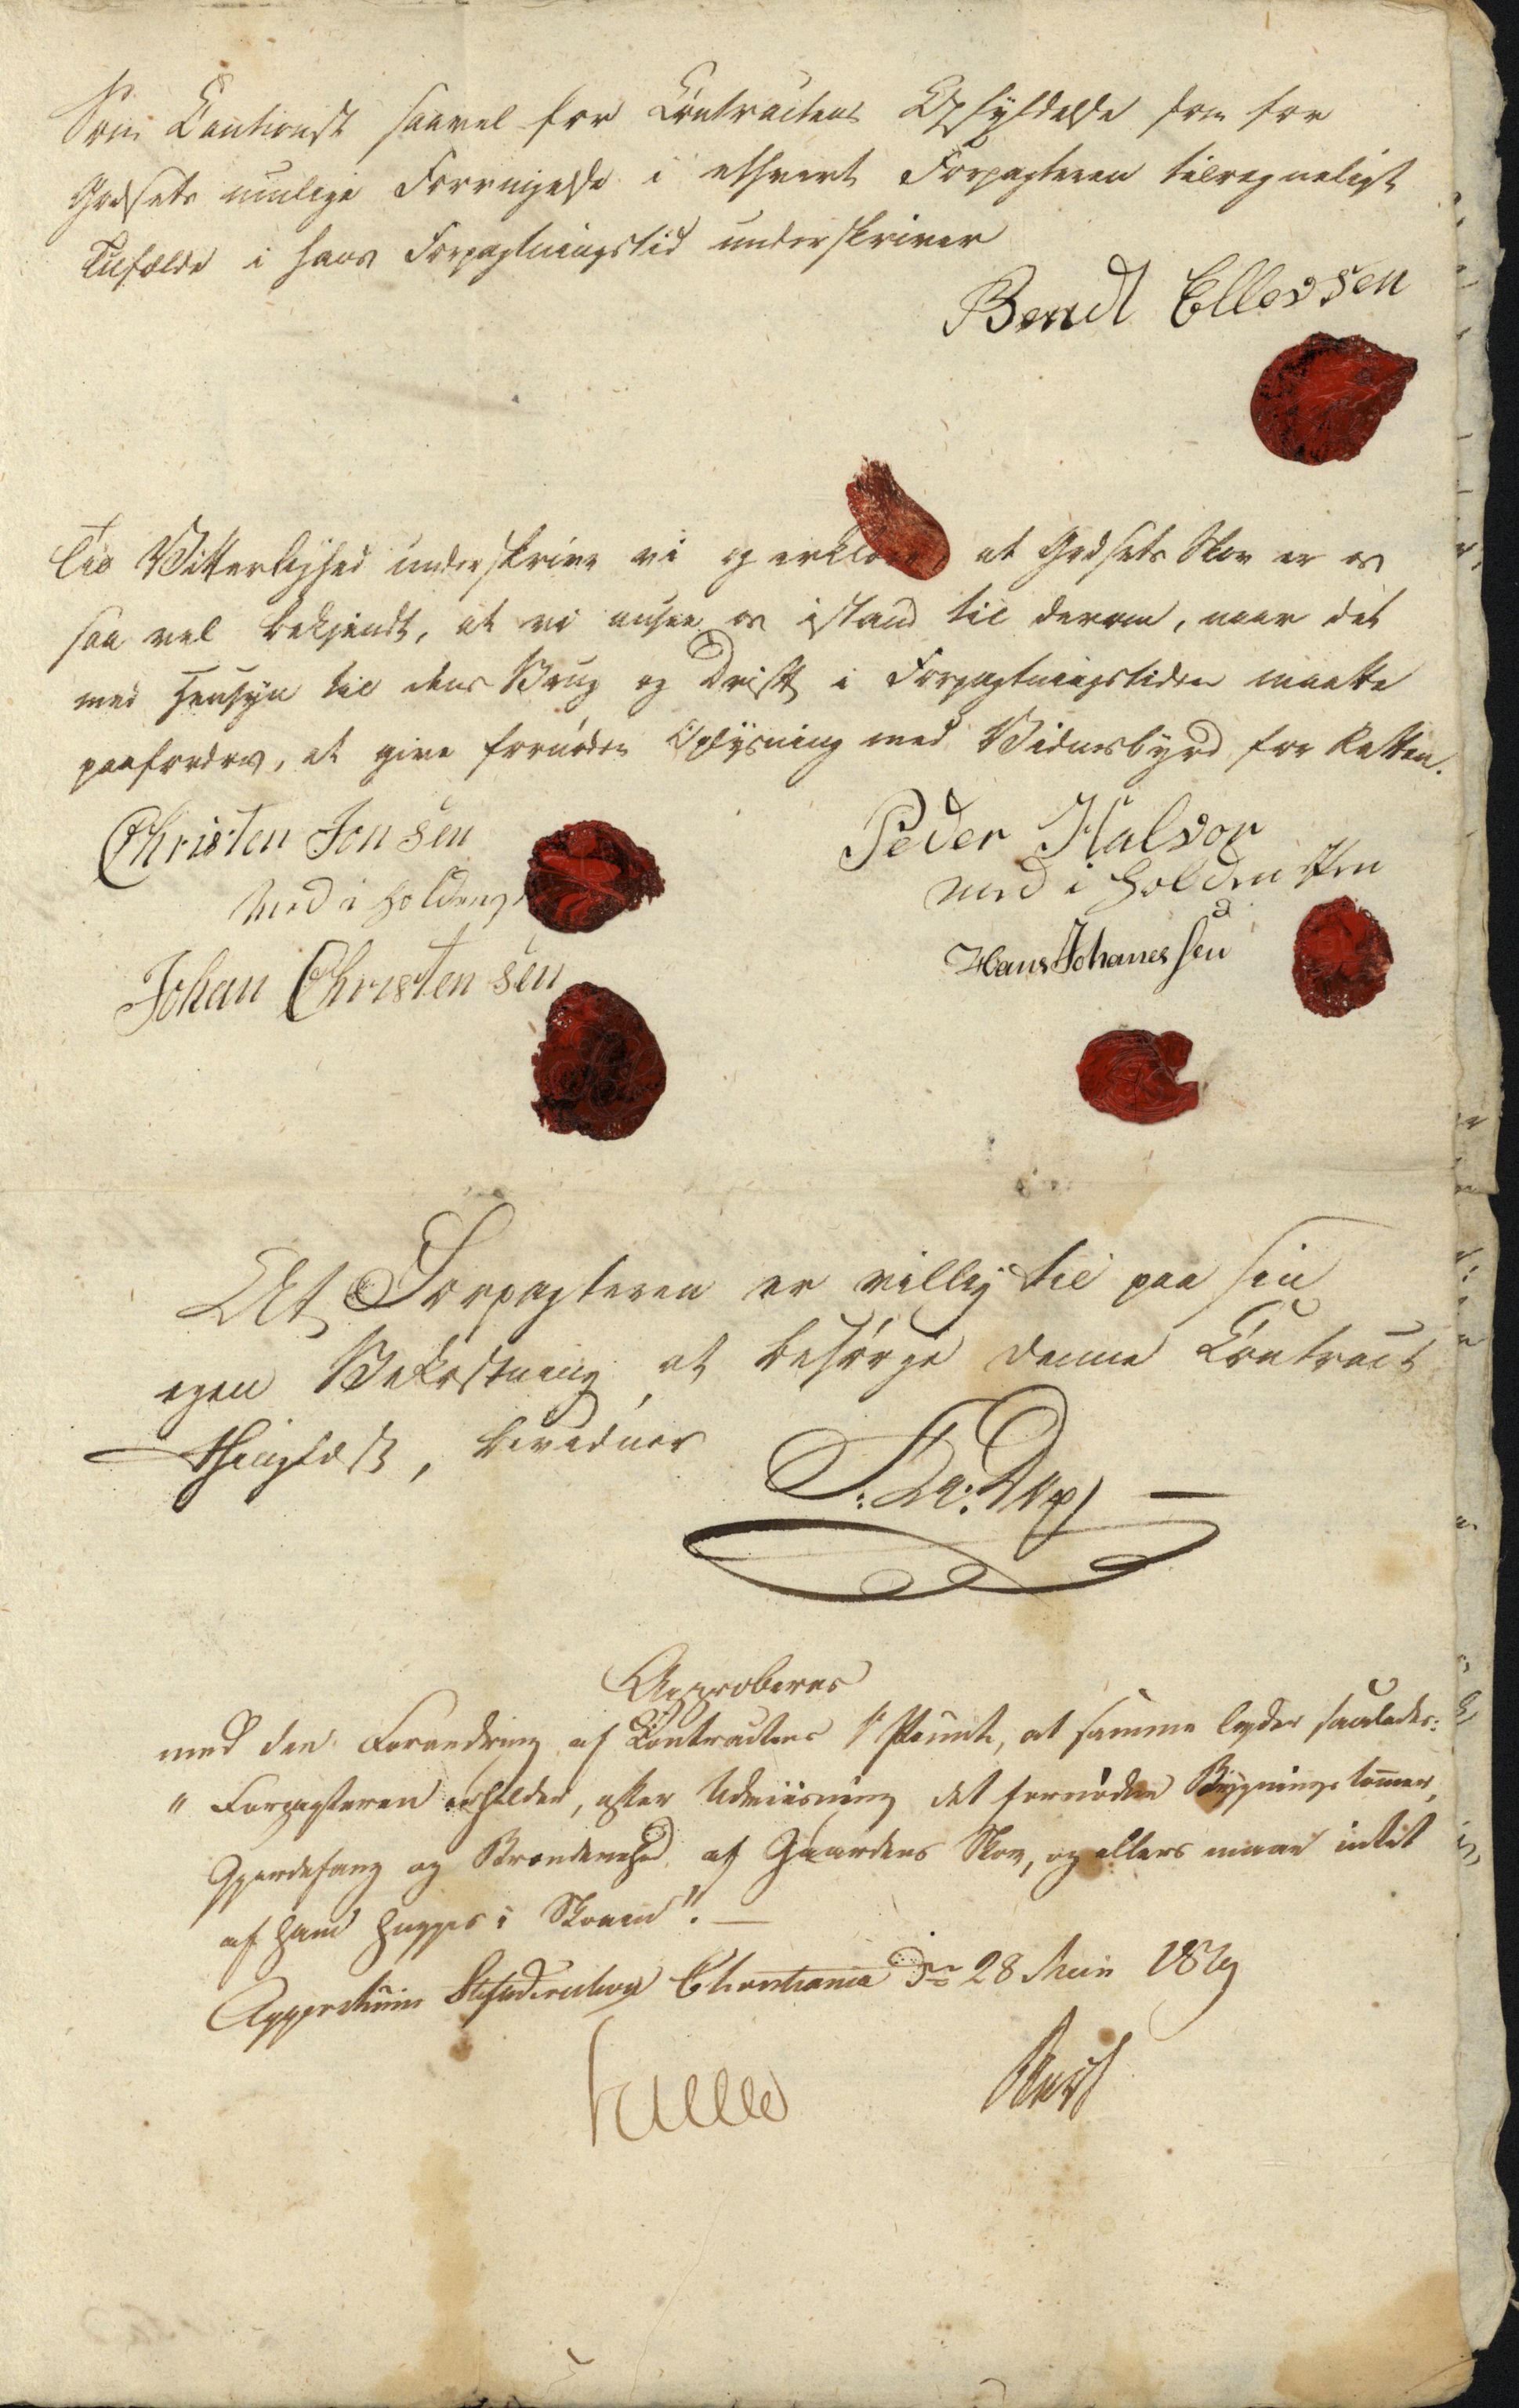 Som Cautionist saavel for Contractens Opfyldelse som for
Godsets mulige Forringelse i ethvert Forpagteren tilregneligt
Tilfælde i hans Forpagtningstid underskriver
Bendt Ellevsen
Til Vitterlighed underskrive vi og erklære at Godsets Skov er os
saa vel bekjendt, at vi ansee os istand til derom, naar det
med Hensyn til dens Brug og Drift i Forpagtningstiden maatte
paafordres, at give fornøden Oplysning med Vidnesbyrd for Retten.
Christen Jonsen
med i holden
Johan Christensen
Peder Halvor
sen
med i holden Pen
Hans Johanessen
At Forpagteren er villig til paa sin
egen Bekostning at besørge denne Contract
thinglæst, bevidner
Approberes
med den Forandring af Contractens Punkt, at samme lyder saaledes:
" Forpagteren erholder, efter Udviisning det fornødne Bygningstømmer,
Gjerdefang og Brændeved af Gaardens Skov, og ellers maae intet
af ham hugges i Skoven". —
Christiania d. 28 Juni 1819